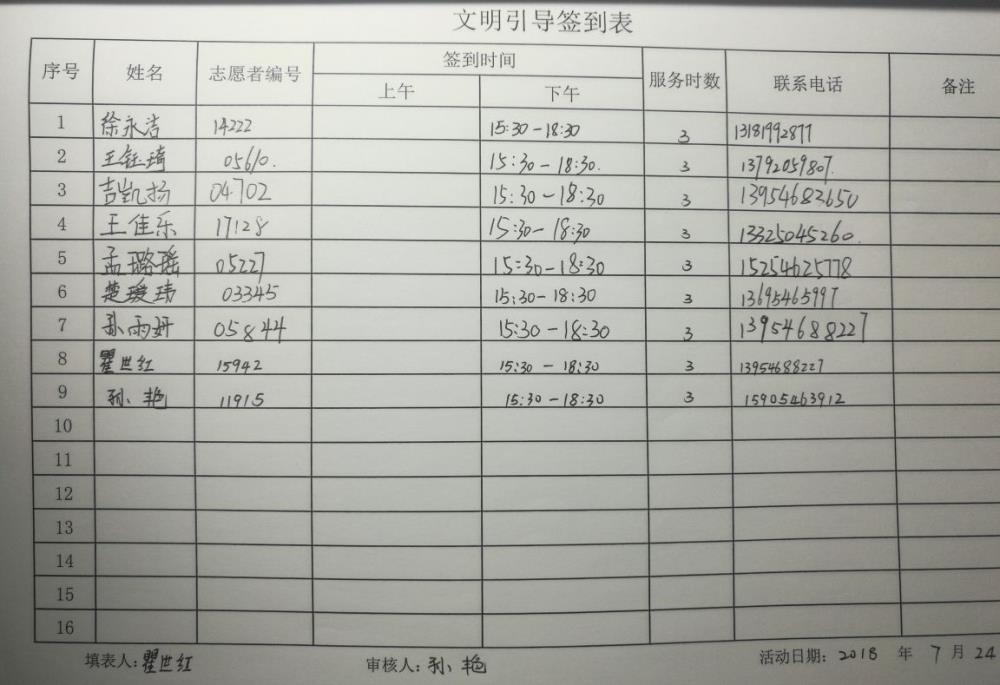 文明引导签到表
序号 姓名 志愿者编号 签到时间 服务时数 联系电话 备注
上午 下午
1 徐永洁 14222 15:30-18:30 3 13181992877
2 王钰琦 05610. 15:30-18:30. 3 13792059807.
3 吉凯扬 04702 15:30-18:30 3 13954683650
4 王佳乐 17128 15:30-18:30 3 13325045260.
5 孟璐瑶 05227 15:30-18:30 3 15254625778
6 楚瑷玮 03345 15:30-18:30 3 13695465997
7 孙雨妍 05844 15:30-18:30 3 13954688227
8 瞿世红 15942 15:30-18:30 3 13954688227
9 孙艳 11915 15:30-18:30 3 15905463912
10
11
12
13
14
15
16
填表人:瞿世红 审核人:孙艳 活动日期:2018 年 7 月 24